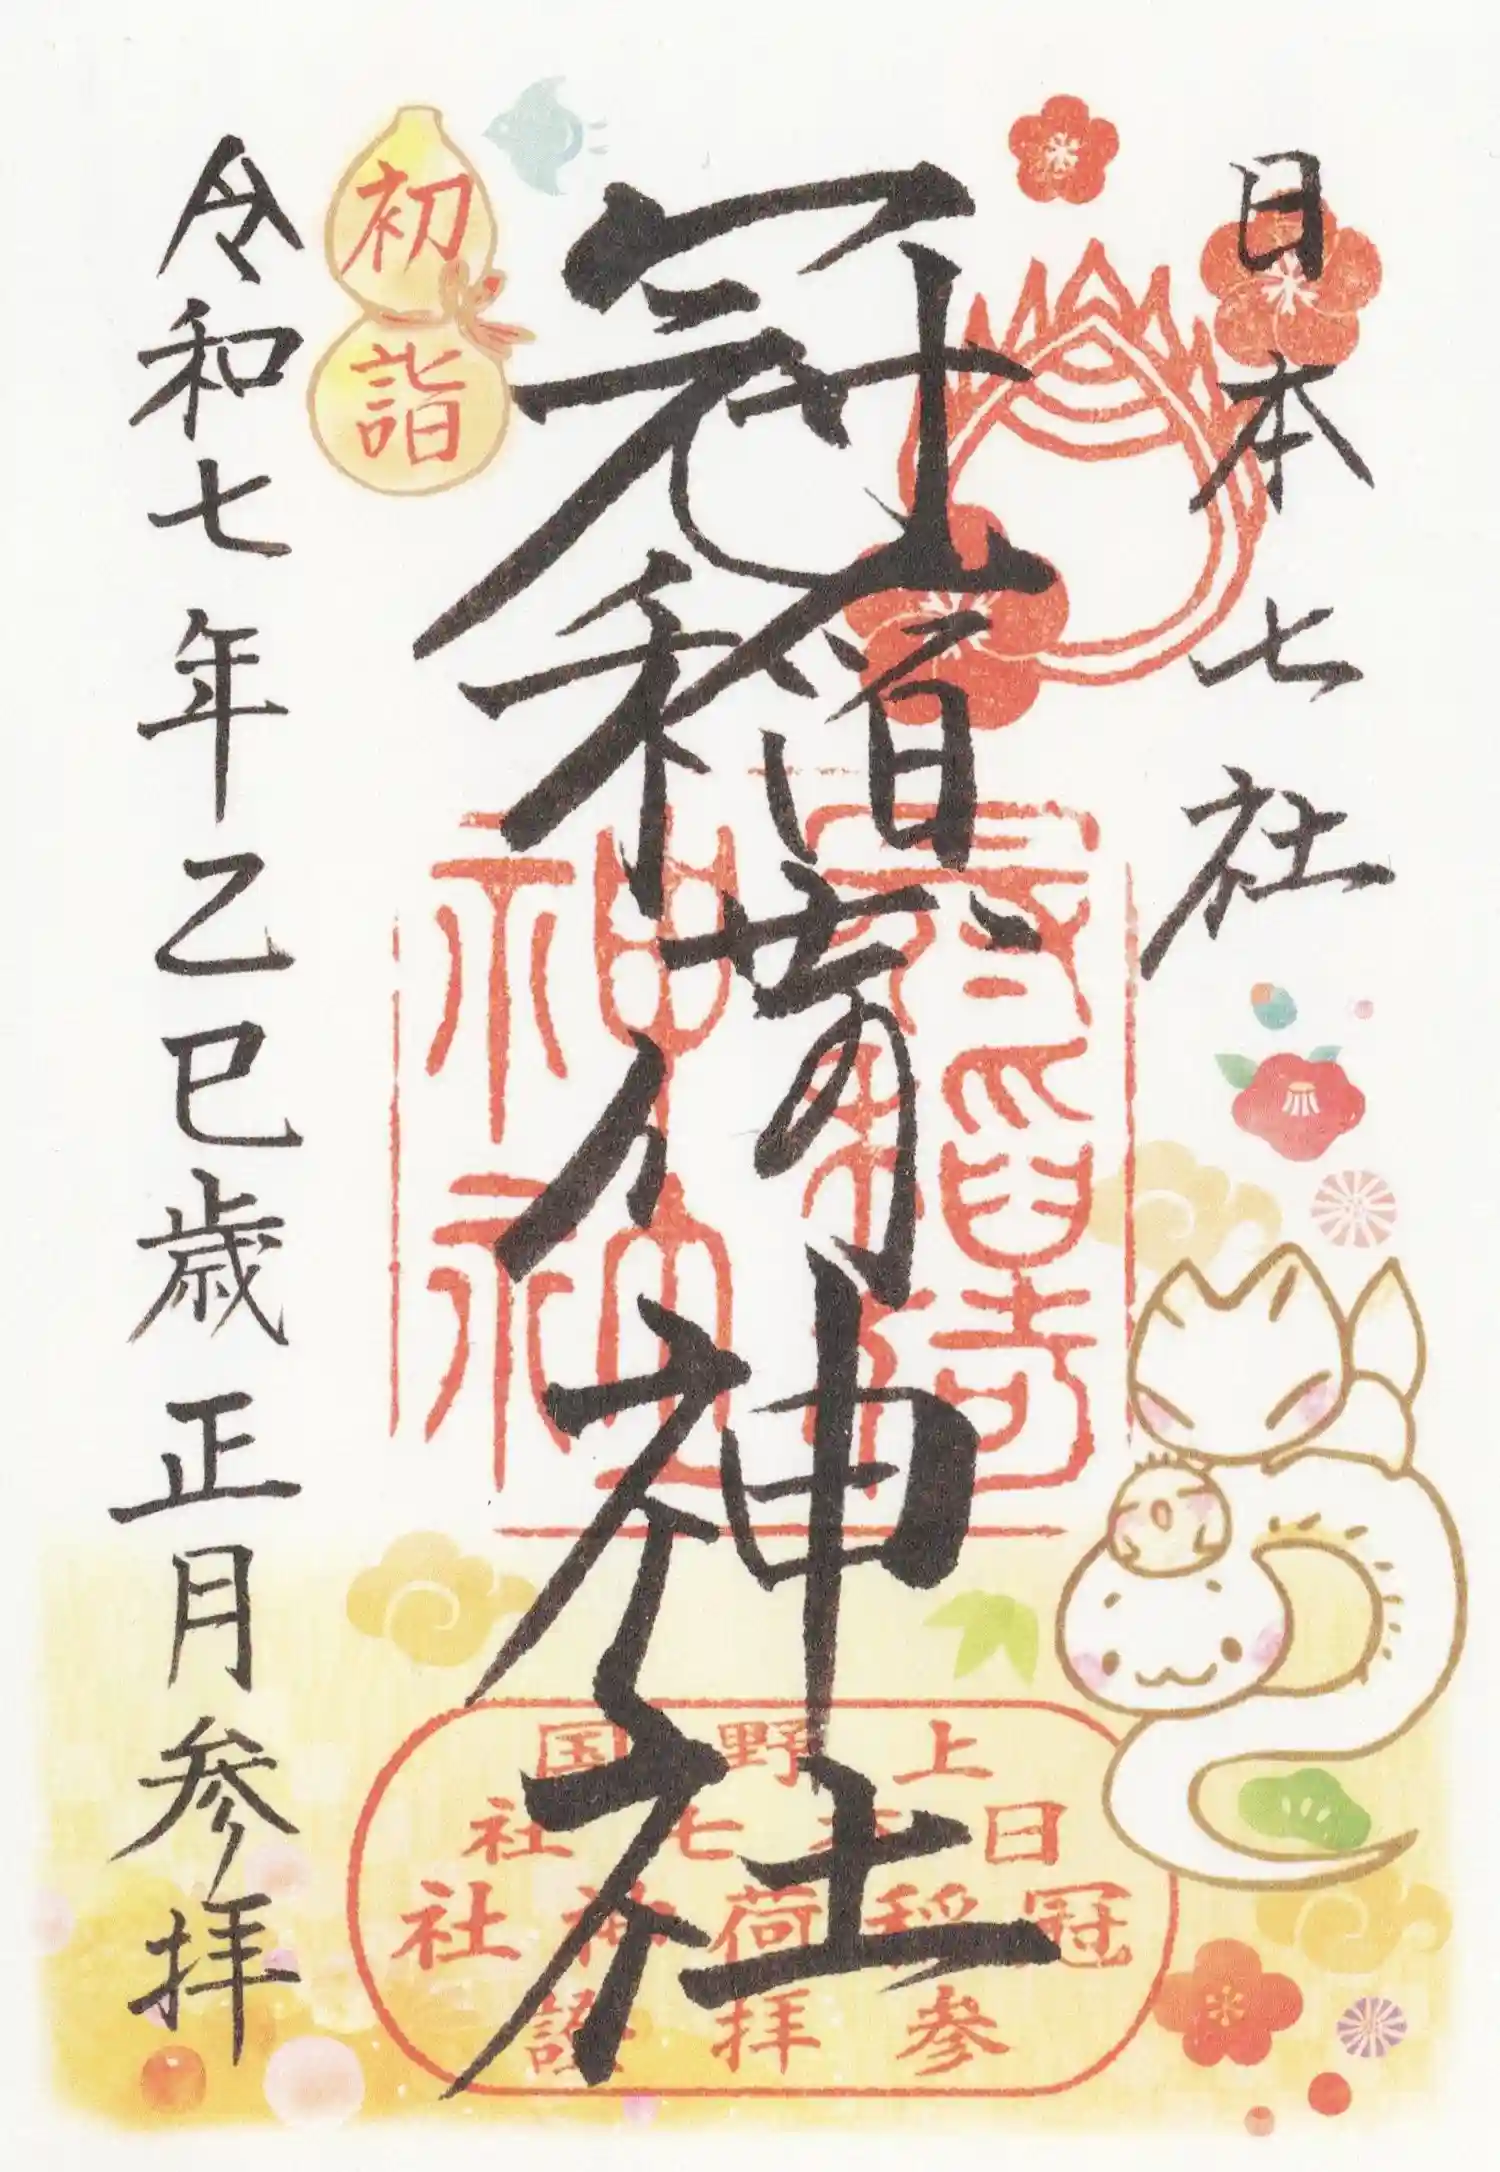 日本七社
冠稲荷神社
初詣
令和七年乙巳歳正月参拝
上野国
日本七社
冠稲荷神社
参拝證